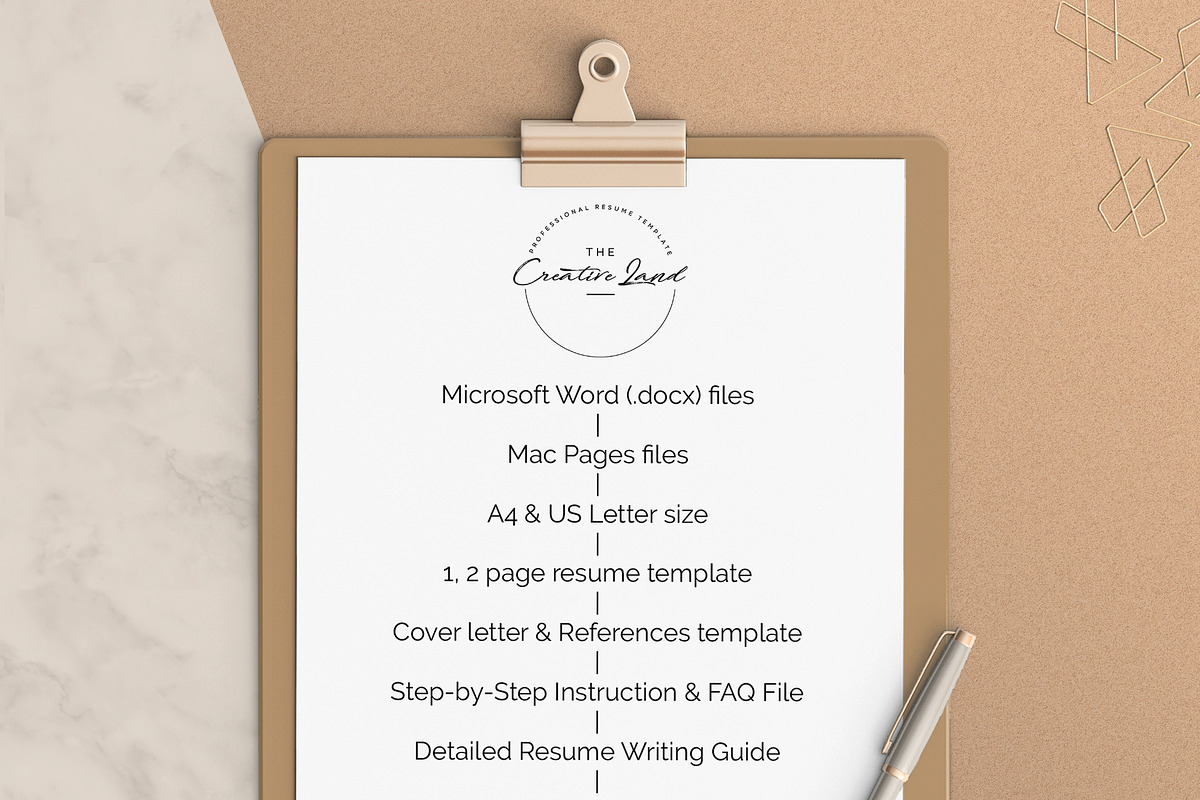 PROFESSIONAL RESUME TEMPLATE
THE
Creative Land
Microsoft Word (.docx) files
Mac Pages files
A4 & US Letter size
1, 2 page resume template
Cover letter & References template
Step-by-Step Instruction & FAQ File
Detailed Resume Writing Guide